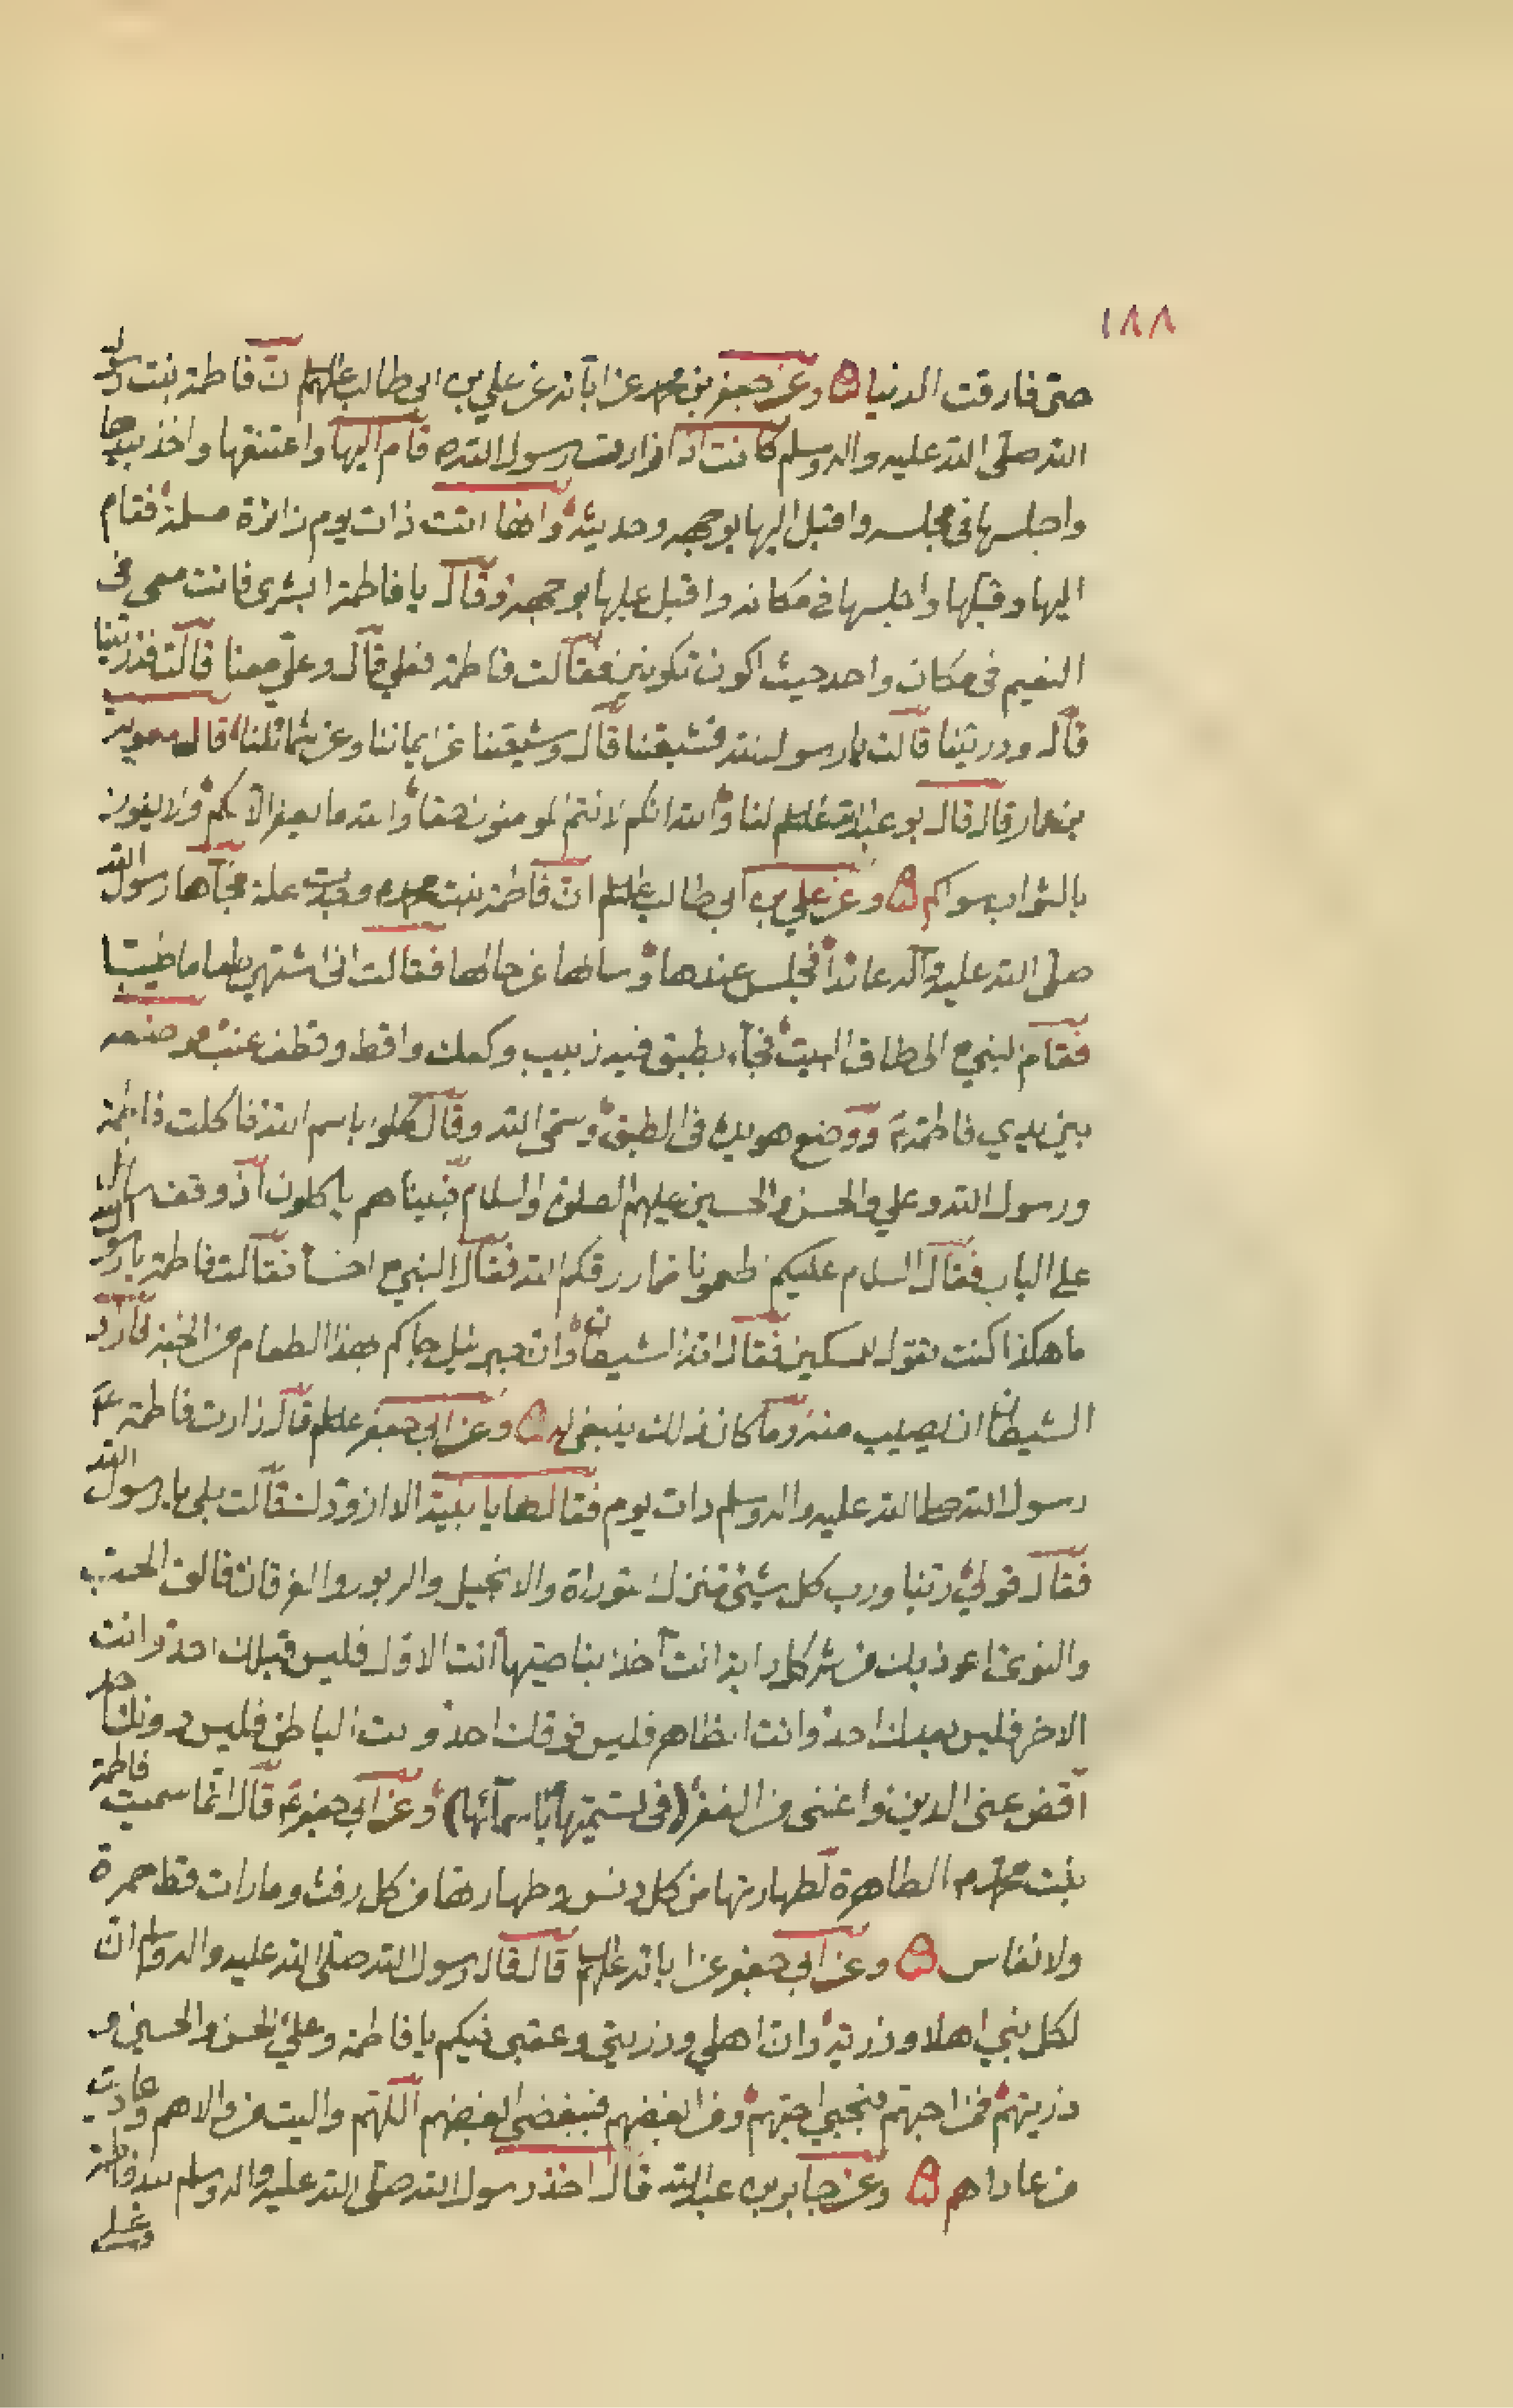 ١٨٨
حتى فارقت الدنيا ه وعن جعفر بن محمد عن ابآئه عن علي بن ابى طالب عليهم ان فاطمة بنت رسول
الله صلى الله عليه واله وسلم كانت اذا زارت رسول الله ص قام اليها واعتنقها واخذ بيدها
واجلسها فى مجلسه واقبل اليها بوجهه وحديثه وانها اتت ذات يوم زائرة مسلمة فقام
اليها وقبلها واجلسها فى مكانه واقبل عليها بوجهه وقال يا فاطمة ابشرى فانت معى فى
النعيم فى مكان واحد حيث اكون تكونين فقالت فاطمة فعلي قال وعلي معنا قالت فذريتنا
قال وذريتنا قالت يا رسول الله فشيعتنا قال وشيعتنا عن ايماننا وعن شمائلنا قال معوية
بن عمار قال قال ابو عبدالله عليه السلم لنا والله انكم لانتم المومنون حقا والله ما يعنى الا كم ولا يفوز
بالثواب سواكم ه وعن علي بن ابى طالب عليه السلم ان فاطمة بنت محمد ص وجدت علة فجآها رسول الله
صلى الله عليه وآله عائدا فجلس عندها وسالها عن حالها فقالت انى اشتهي طعاما طيبا
فقام النبي ص الى طاق البيت فجآء بطبق فيه زبيب وكعك واقط وقطف عنب فوضعه
بين يدي فاطمة ع ووضع هو يده فى الطبق وسمى الله وقال كلوا باسم الله فاكلت فاطمة
ورسول الله وعلي والحسن والحسين عليهم الصلوة والسلام فبينا هم ياكلون اذ وقف سائل
على الباب فقال السلام عليكم اطعمونا مما رزقكم الله فقال النبي ص اخسأ فقالت فاطمة يا رسول الله
ما هكذا كنت تقول للمسكين فقال انه الشيطان وان جبرئيل جاكم بهذا الطعام من الجنة فاراد
الشيطان ان يصيب منه وما كان ذلك ينبغى له ه وعن ابي جعفر عليه السلم قال زارت فاطمة ع
رسول الله صلى الله عليه واله وسلم ذات يوم فقال لها يا بنية الا ازودك فقالت بلى يا رسول الله
فقال قولي ربنا ورب كل شيئ منزل التوراة والانجيل والزبور والفرقان فالق الحب
والنوى اعوذ بك من شر كل دابة انت آخذ بناصيتها انت الاول فليس قبلك احد وانت
الاخر فليس بعدك احد وانت الظاهر فليس فوقك احد وانت الباطن فليس دونك احد
اقض عنى الدين واغننى من الفقر (فى تسميتها باسمآئها) وعن ابي جعفر ع قال انما سميت فاطمة
بنت محمد ص الطاهرة لطهارتها من كل دنس وطهارتها من كل رفث وما رات قط حمرة
ولا نفاس ه وعن ابي جعفر عن ابائه عليهم السلم قال قال رسول الله صلى الله عليه واله وسلم ان
لكل نبي اهلا وذرية وان اهلي وذريتي وعقبى فيكم يا فاطمة وعلي والحسن والحسين و
ذريتهم فمن احبهم فبحبي احبهم ومن ابغضهم فببغضى ابغضهم اللهم واليت من والاهم وعاديت
من عاداهم ه وعن جابر بن عبد الله قال اخذ رسول الله صلى الله عليه واله وسلم بيد فاطمة
وعلي